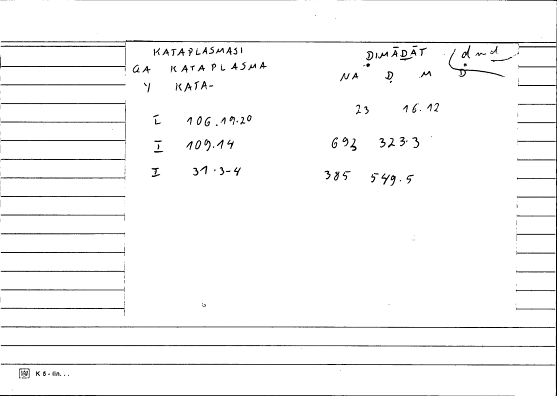 KATAPLASMASI ḌIMĀḌĀT dmd
QA KATAPLASMA NA Ḍ M Ḍ
Y KATA-
23 16.12
I 106.19.20
I 109.14 693 323.3
II 31.3-4 385 549.5
K 5 - lin...